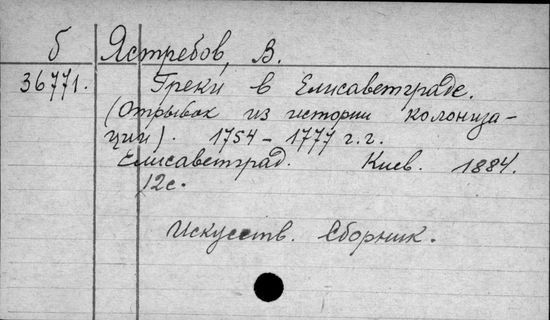 б Ястребов, В.
36771. Греки в Елисаветграде.
(Отрывок из истории колониза-
ции). 1754-1777 г.г.
Елисаветград. Киев. 1884.
12с.
Искусств. Сборник.